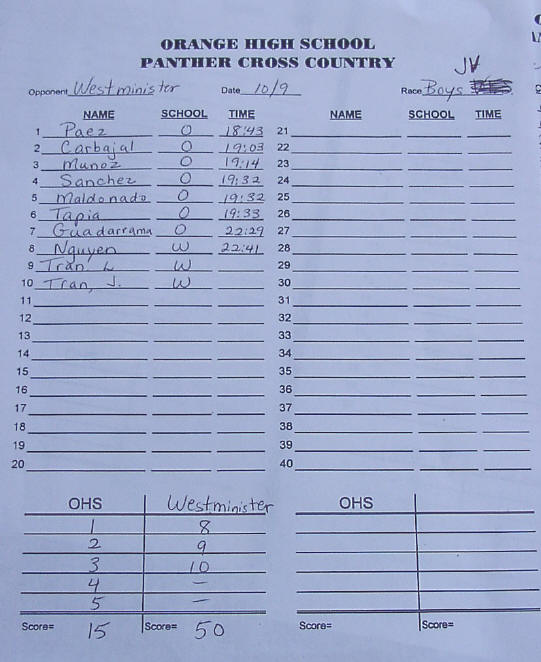 ORANGE HIGH SCHOOL
PANTHER CROSS COUNTRY
JV
Opponent Westminister Date 10/9 Race Boys
NAME SCHOOL TIME NAME SCHOOL TIME
1 Paez O 18:43 21
2 Carbajal O 19:03 22
3 Munoz O 19:14 23
4 Sanchez O 19:32 24
5 Maldonado O 19:32 25
6 Tapia O 19:33 26
7 Guadarrama O 22:29 27
8 Nguyen W 22:41 28
9 Tran. L W 29
10 Tran, J. W 30
11 31
12 32
13 33
14 34
15 35
16 36
17 37
18 38
19 39
20 40
OHS Westminister OHS
1 8
2 9
3 10
4 –
5 –
Score= 15 Score= 50 Score= Score=